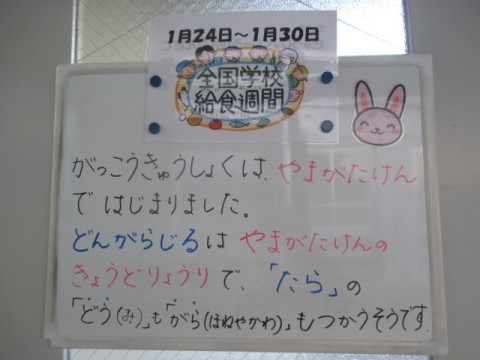 1月24日～1月30日
全国学校
給食週間
がっこうきゅうしょくは、やまがたけん
ではじまりました。
どんがらじるはやまがたけんの
きょうどりょうりで、「たら」の
「どう(み)」も「がら(ほねやかわ)」もつかうそうです。